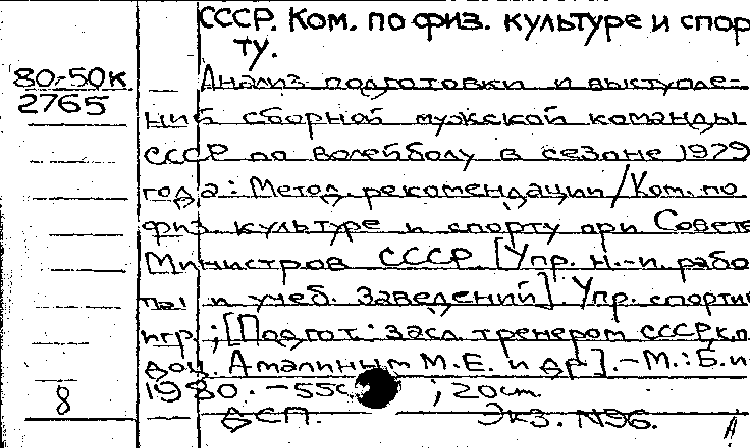 СССР. Ком. по физ. культуре и спор
ту.
80-50к
2765
Анализ подготовки и выступле-
ний сборной мужской команды
СССР по волейболу в сезоне 1979
года: Метод. рекомендации/Ком. по
физ. культуре и спорту при Совете
Министров СССР [Упр. н.-и. рабо
ты и учеб. заведений]. Упр. спортив
игр; [Подгот.: засл. тренером СССР, к.п.
доц. Амалиным М.Е. и др]. - М.: Б.и
1980. - 55с ; 20см.
8
ДСП. Экз. N96.